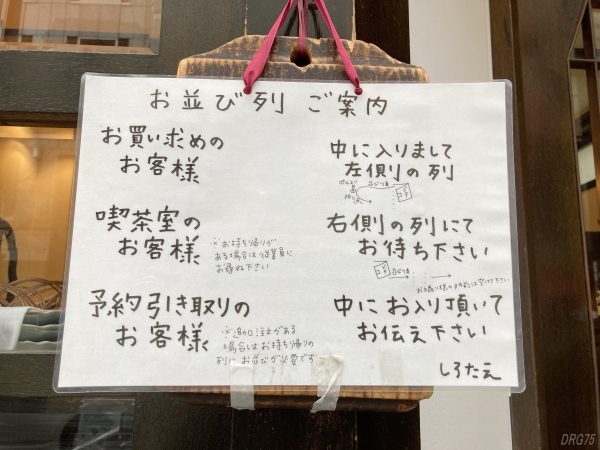 お並び列 ご案内
お買い求めの
お客様
中に入りまして
左側の列
喫茶室の
お客様
※お持ち帰りが
ある場合は従業員に
お尋ね下さい
右側の列にて
お待ち下さい
予約引き取りの
お客様
※追加注文がある
場合はお持ち帰りの
列にお並びが必要です
中にお入り頂いて
お伝え下さい
しろたえ
DRG75